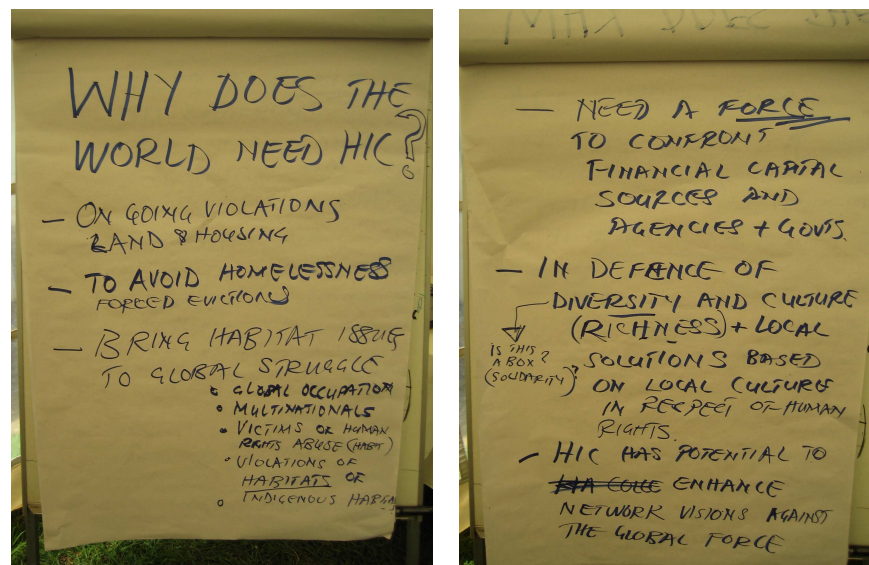 WHY DOES THE
WORLD NEED HIC?
— ON GOING VIOLATIONS
LAND & HOUSING
— TO AVOID HOMELESSNESS
FORCED EVICTIONS
— BRING HABITAT ISSUES
TO GLOBAL STRUGGLE
• GLOBAL OCCUPATION
• MULTINATIONALS
• VICTIMS OF HUMAN
RIGHTS ABUSE (HABIT)
• VIOLATIONS OF
HABITATS OF
• INDIGENOUS
WHY DOES THE
— NEED A FORCE
TO CONFRONT
FINANCIAL CAPITAL
SOURCES AND
AGENCIES + GOVTS.
— IN DEFENCE OF
DIVERSITY AND CULTURE
(RICHNESS) + LOCAL
SOLUTIONS BASED
ON LOCAL CULTURE
IN RESPECT OF HUMAN
RIGHTS.
IS THIS?
A BOX
(SOLIDARITY)?
— HIC HAS POTENTIAL TO
ENHANCE
NETWORK VISIONS AGAINST
THE GLOBAL FORCE